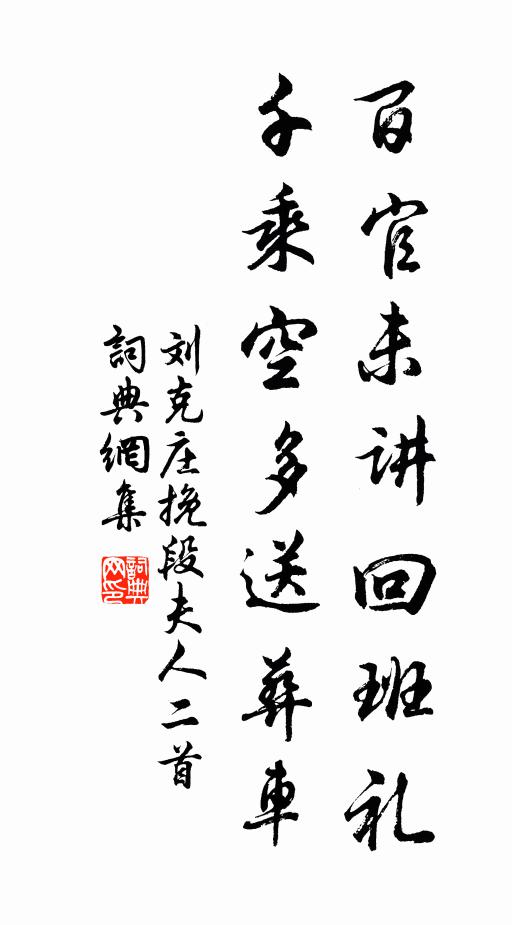 百官未讲回班礼
千乘空多送葬车
刘克庄挽段夫人二首
詞典網集
詞典网印